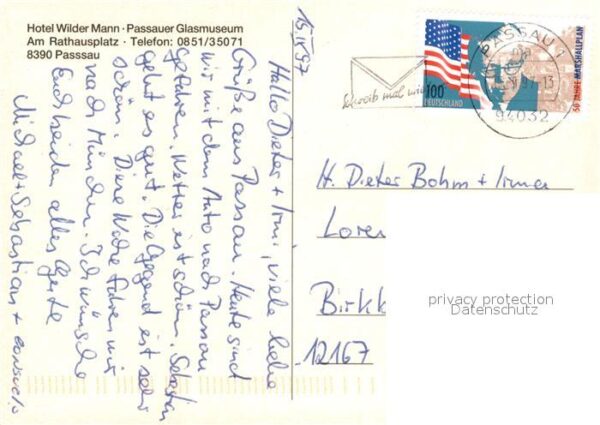 Hotel Wilder Mann · Passauer Glasmuseum
Am Rathausplatz · Telefon: 0851/35071
8390 Passsau
15.IX 97
Hallo Dieter + Irmi, viele liebe
Grüße aus Passau. Heute sind
wir mit dem Auto nach Passau
gefahren. Wetter ist schön. Sebastian
geht es gut. Die Gegend ist sehr
schön. Diese Woche fahren wir
nach München. Ich wünsche
Euch beiden alles Gute
Michael + Sebastian +
100
DEUTSCHLAND
50 JAHRE MARSHALLPLAN
PASSAU 1
94032
Schreib mal wieder
H. Dieter Bohm + Irma
Loren
Birkk
12167
privacy protection
Datenschutz